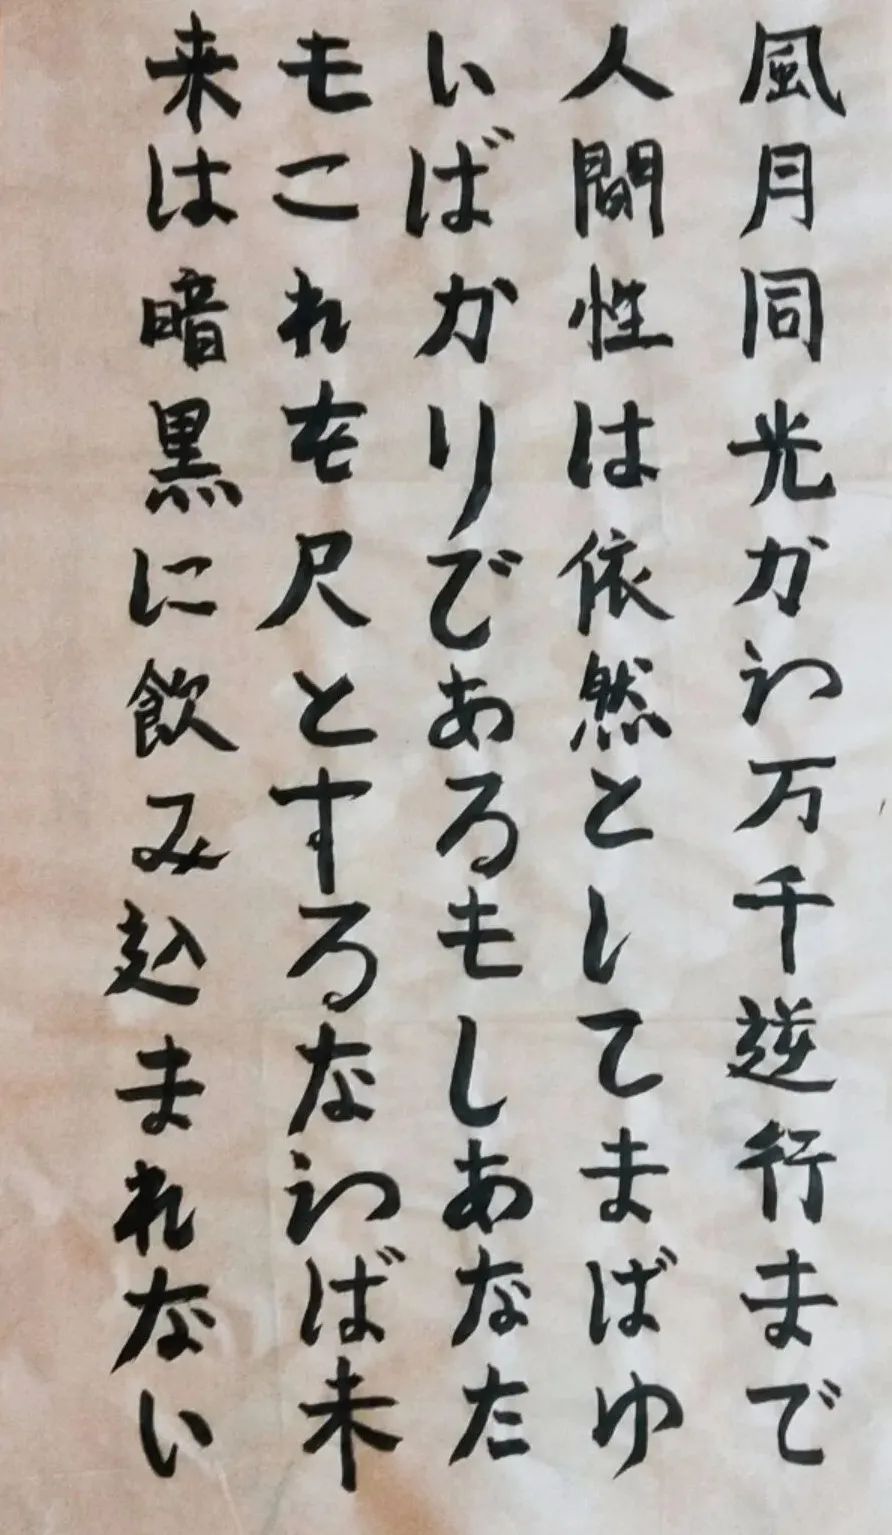 風月同光かわ万千逆行まで
人間性は依然としてまばゆ
いばかりであるもしあなた
もこれを尺とするなわば未
来は暗黒に飲み込まれない